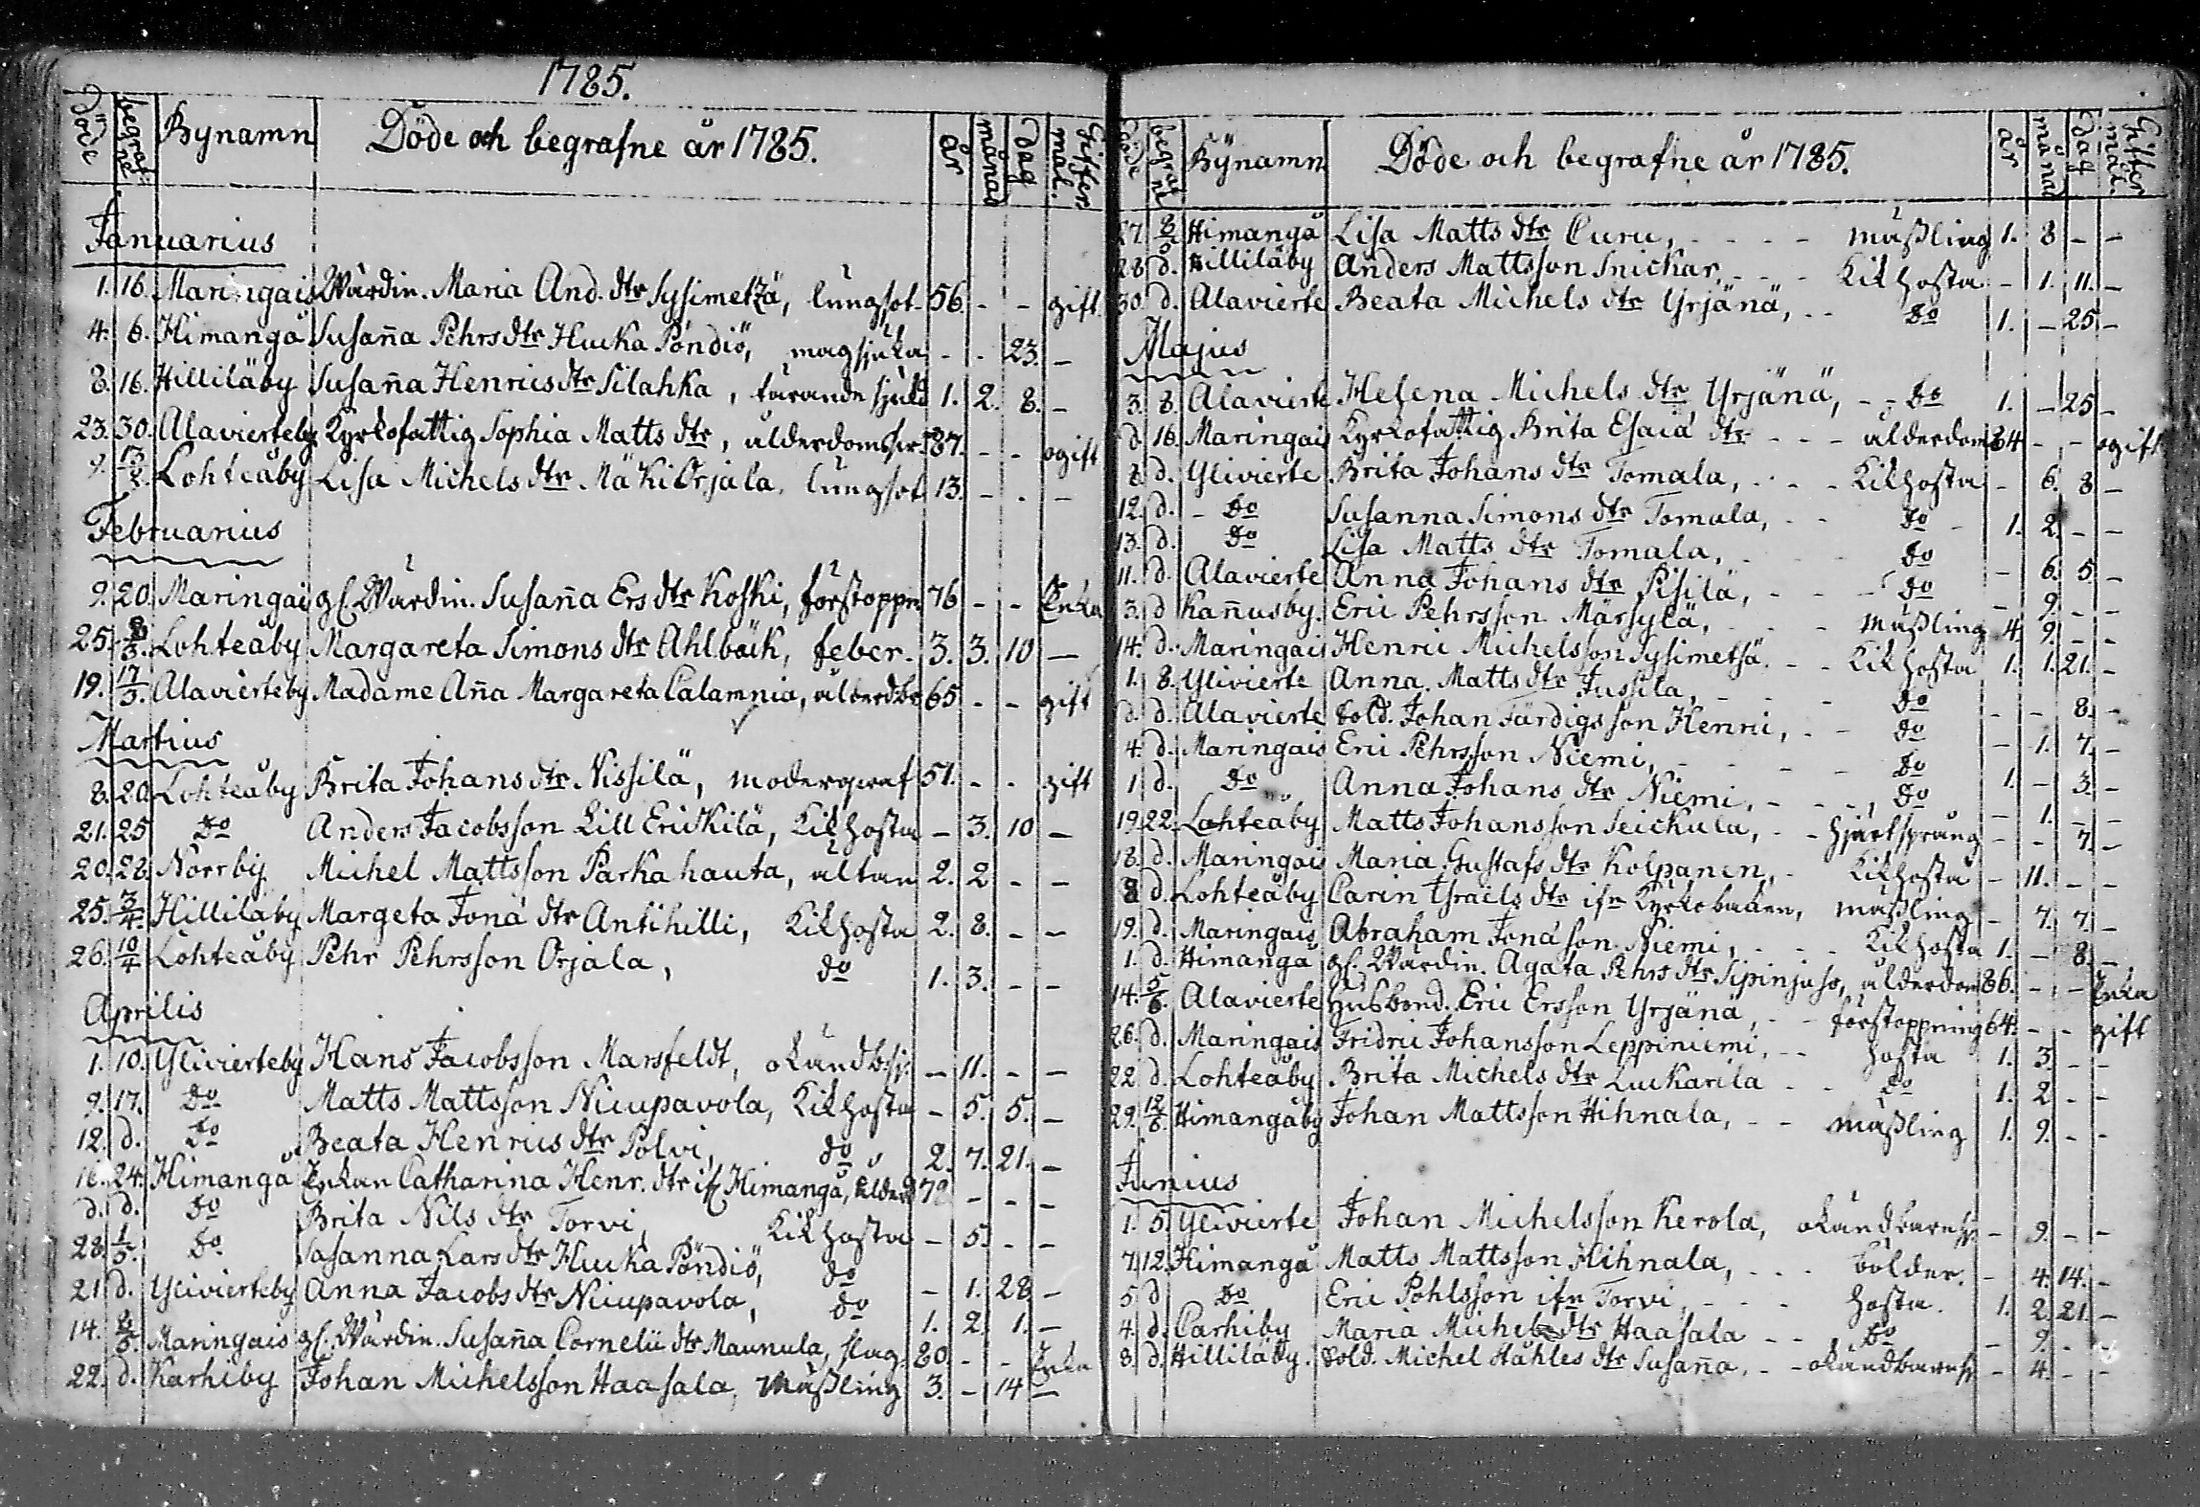 1785.
Döde begrafne Bynamn Döde och begrafne år 1785. år månad dag Giftermål.
Januarius
1. 16. Maringais Wärdin. Maria And. dtr Sysimetzä, lungsot 56. - - gift
4. 6. Himangå Susan̄a Pehrs dtr Hucka Pöndiö, magsjuka - - 23. -
8. 16. Hilliläby Susan̄a Henrics dtr Silahka, tärande sjukd 1. 2. 8. -
23. 30. Alavierteby Kyrkofattig Sophia Matts dtr, ålderdoms 87. - - ogift
9. 13/2. Lohteåby Lisa Michels dtr Mäki Orjala, lungsot 13. - - -
Februarius
9. 20. Maringais gl. Wärdin. Susan̄a Ers dtr Koski, förstoppn 76 - - Enka
25. 8/3. Lohteåby Margareta Simons dtr Ahlbäck, feber. 3. 3. 10 -
19. 17/3. Alavierteby Madame An̄a Margareta Calamnia, ålderdbr 65 - - gift
Martius
8. 20. Lohteåby Brita Johans dtr Nissilä, moderqwaf 51. - - gift
21. 25 Do Anders Jacobsson Lill Erickilä, Kikhosta - 3. 10 -
20. 28. Norrby Michel Mattsson Parkahauta, altan 2. 2 - -
25. 3/4. Hilliläby Margeta Jonä dtr Antihilli, Kikhosta 2. 8. - -
26. 10/4 Lohteåby Pehr Pehrsson Orjala, do 1. 3. - -
Aprilis
1. 10. Ylivierteby Hans Jacobsson Marsfeldt, okändbsj. - 11. - -
9. 17. Do Matts Mattsson Nicupavola, Kikhosta - 5. 5. -
12. d. Do Beata Henrics dtr Polvi, do 2. 7. 21. -
16. 24. Himangå Enkan Catharina Henr. dtr if Himangå, ålderd 79 - - -
d. d. Do Brita Nils dtr Torvi, Kikhosta - 5. - -
28. 1/5. Do. Susanna Lars dtr Hucka Pöndiö, do - 1. 28 -
21 d. Ylivierteby Anna Jacobs dtr Nicupavola, do 1. 2. 1. -
14. 8/5. Maringais gl. Wärdin. Susan̄a Cornelii dtr Maunula, slag. 80 - - Enka
22. d. Karhiby Johan Michelsson Haasala, Mäßling 3. - 14 -
Döde begrafne Bÿnamn Döde och begrafne år 1785. år månad dag Giftermål.
27. 8/5 Himangå Lisa Matts dtr Curu, - - - - mäßling 1. 8 - -
28 d. Hilliläby Anders Mattsson Snickar, - - - Kikhosta - 1. 11. -
30. d. Alavierte Beata Michels dtr Yrjänä, - - Do 1. - 25 -
Majus
3. 8. Alavierte Helena Michels dtr Yrjänä, - - Do 1. - 25 -
d 16. Maringais Kyrkofattig Brita Esaiä dtr - - - ålderdom 84 - - ogift
8. d. Ylivierte Brita Johans dtr Tomala, - - - Kikhosta - 6. 8 -
12. d. - Do Susanna Simons dtr Tomala, - - Do - 1. 2. - -
13. d. Do Lisa Matts dtr Tomala, - - - Do - 6. 5 -
11. d. Alavierte Anna Johans dtr Pisilä, - - - Do - 9. - -
3. d Kan̄usby. Eric Pehrsson Märsylä, - - - mäßling 4. 9. - -
14. d. Maringais Henric Michelsson Sysimetsä. - - Kikhosta 1. 1. 21. -
1. 8. Ylivierte Anna Matts dtr Jussila, - - - Do - - 8. -
d. d. Alavierte Sold. Johan Färdigs son Henric, - - Do - 1. 7. -
4. d. Maringais Eric Pehrsson Niemi, - - - - Do 1. - 3. -
1 d. Do Anna Johans dtr Niemi, - - - Do - 1. - -
19. 22. Lohteåby Matts Johansson Seickula, - - hjärtsprång - - 7. -
18. d. Maringais Maria Gustafs dtr Kolpanen, - Kikhosta - 11. - -
8 d. Lohteåby Carin Ysraels dtr ifn Kyrkobacken, mäßling - 7. 7. -
19. d. Maringais Abraham Jonä son Niemi, - - Kikhosta 1. - 8. -
1. d. Himangå gl. Wärdin. Agata Pehrs dtr Sipinjuso, ålderdom 86. - - Enka
14. 5/6. Alavierte Husbond. Eric Ersson Yrjänä, - - förstoppning 64. - - gift
26. d. Maringais Fridric Johansson Leppiniemi, - - hosta 1. 3. - -
22 d. Lohteåby Brita Michels dtr Luckarila - - Do 1. 2 - -
29. 12/6. Himangåby Johan Mattsson Hihnala, - - mäßling 1. 9. - -
Junius
1. 5. Ylivierte Johan Michelsson Kerola, okändbarnsj. - 9. - -
7. 12. Himangå Matts Mattsson Hihnala, - - - bölder. - 4. 14. -
5 d Do Eric Pohlsson ifn Torvi, - - - hosta. 1. 2. 21. -
4. d. Carhiby Maria Michels dtr Haasala - - Do - 9. - -
8. d. Hilliläby. Sold. Michel Ståhles dtr Susan̄a, - - okändbarnsj - 4. - -